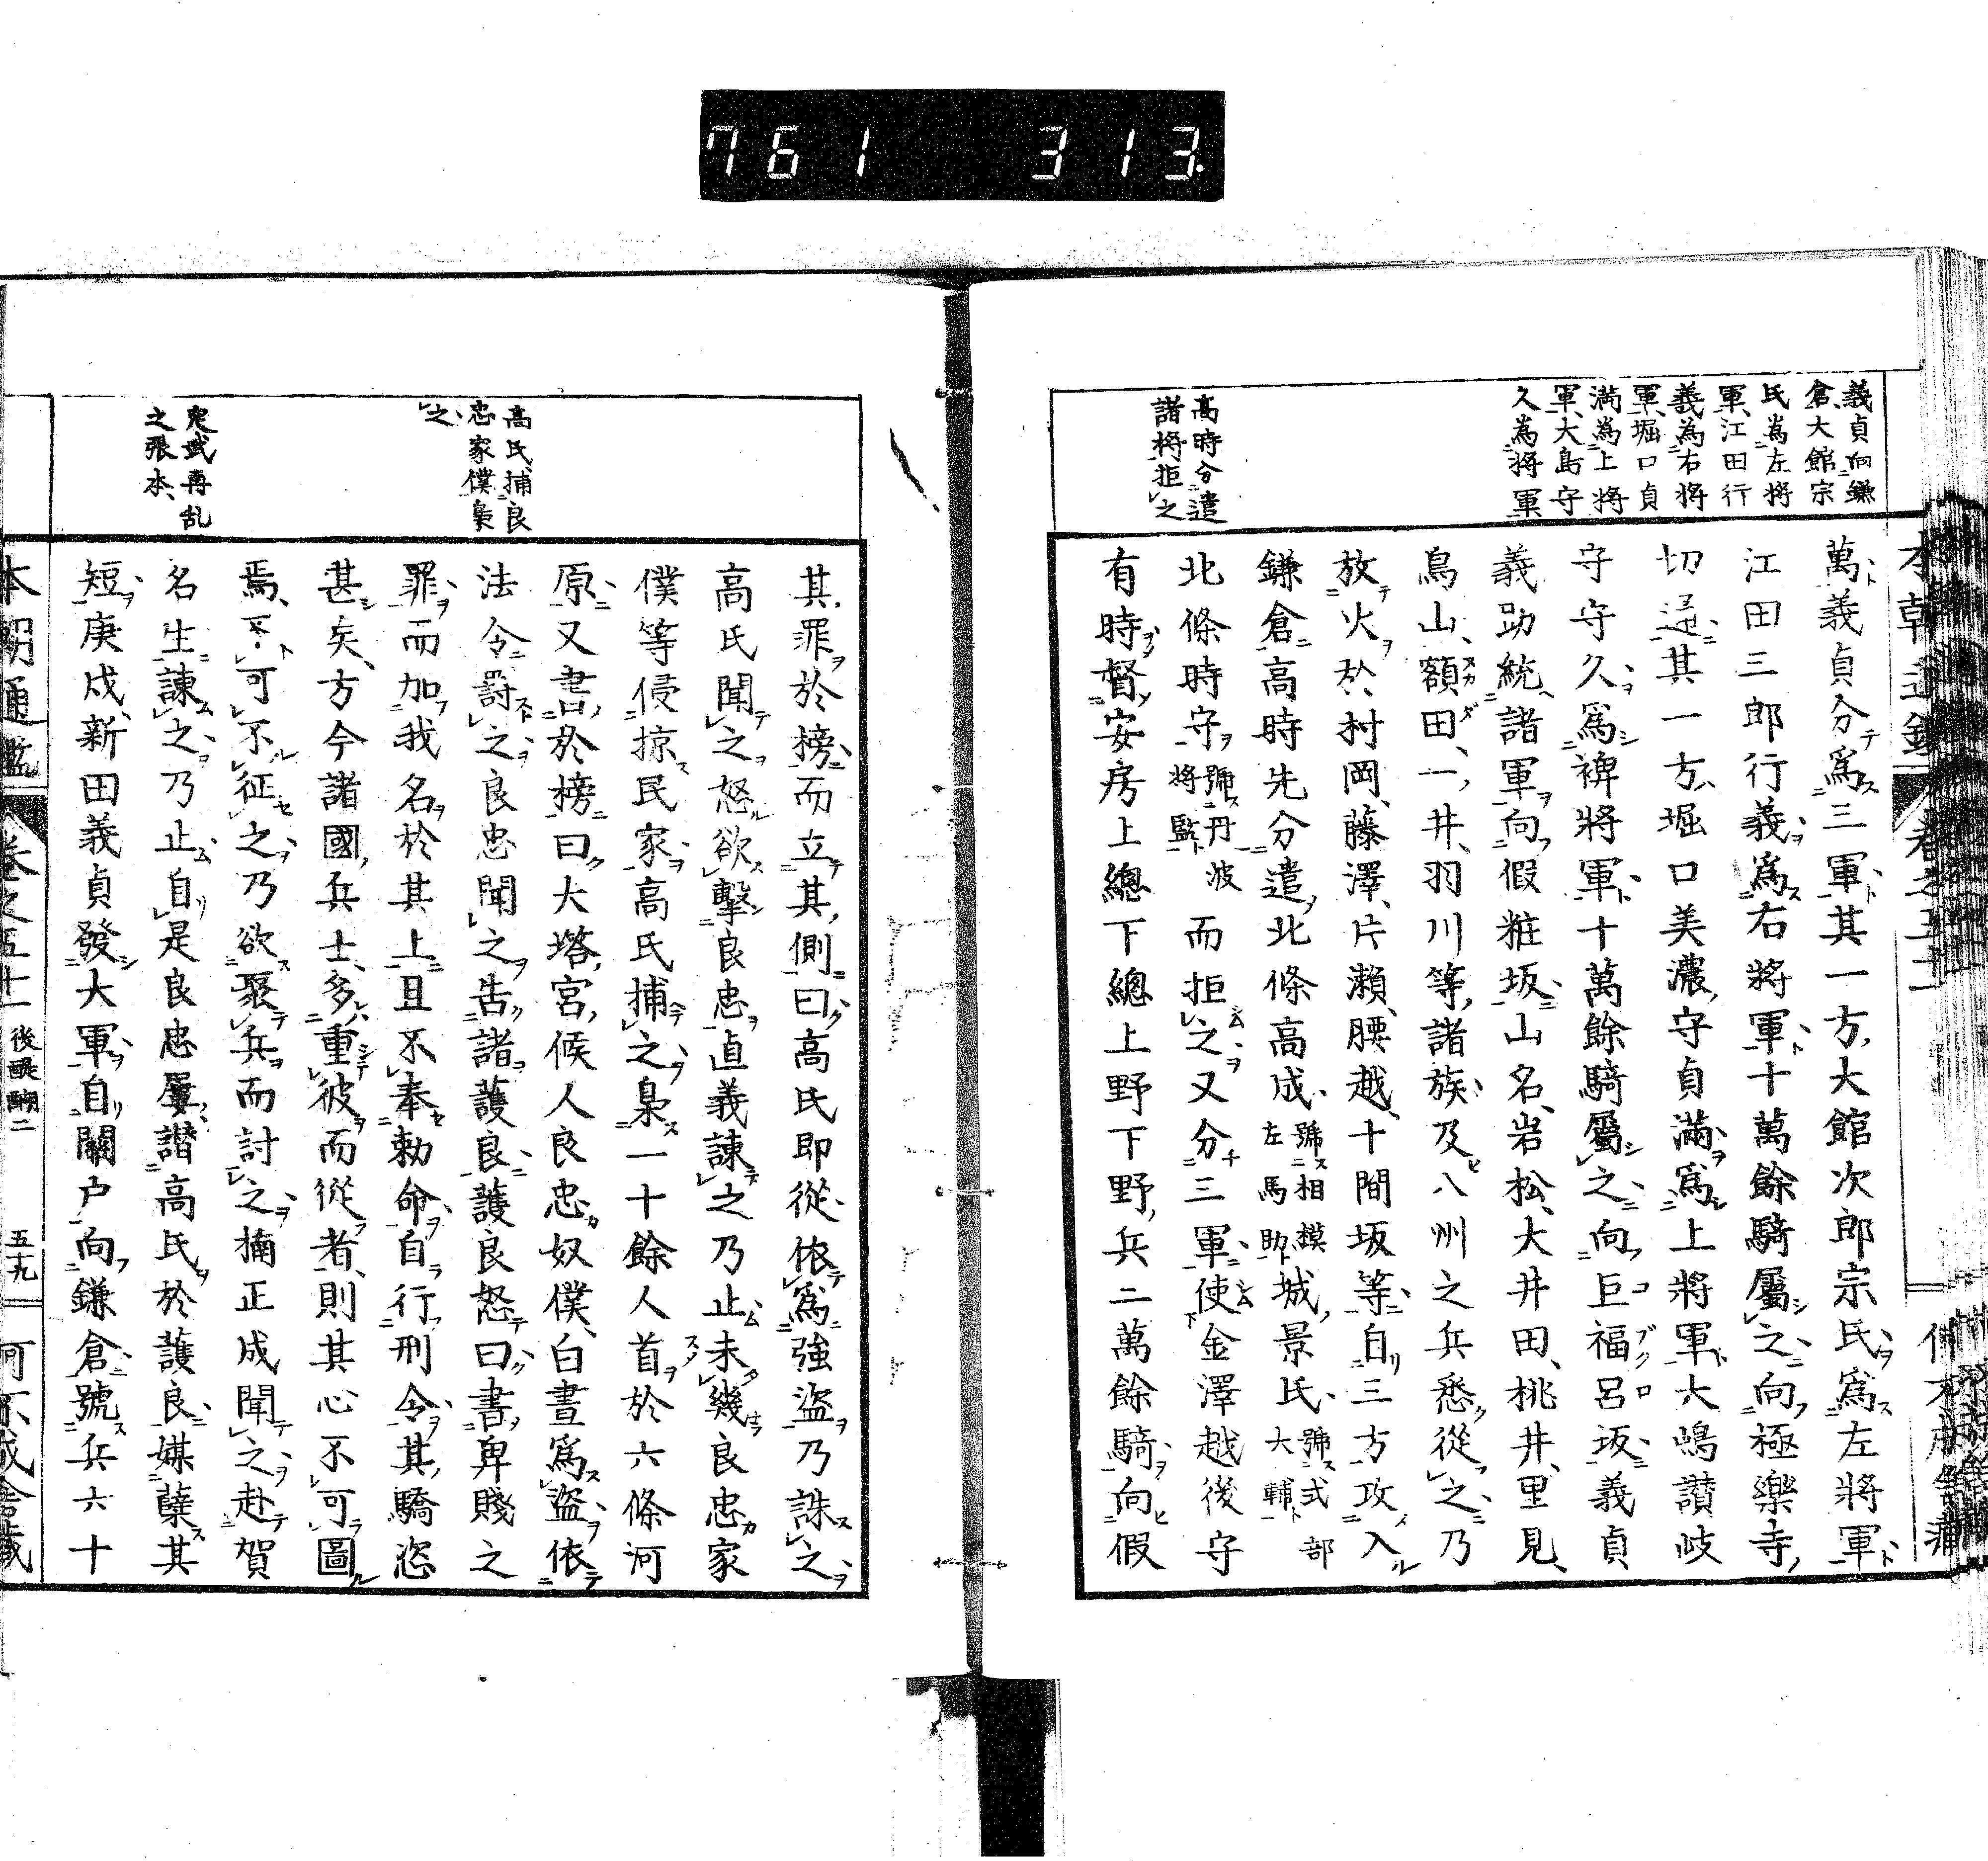 義貞向鎌
倉、大館宗
氏爲左將
軍、江田行
義爲右將
軍、堀口貞
滿爲上將
軍、大島守
久爲將軍
高時分遣
諸將拒之
萬義貞分爲三軍其一方大館次郎宗氏爲左將軍
江田三郎行義爲右將軍十萬餘騎屬之向極樂寺
切通其一方堀口美濃守貞滿爲上將軍大嶋讃岐
守守久爲裨將軍十萬餘騎屬之向巨福呂坂義貞
義助統諸軍向假粧坂山名岩松大井田桃井里見
鳥山額田一井羽川等諸族及八州之兵悉從之乃
放火於村岡藤澤片瀬腰越十間坂等自三方攻入
鎌倉高時先分遣北條高成號相模左馬助城景氏號式部大輔
北條時守號丹波將監而拒之又分三軍使金澤越後守
有時督安房上總下總上野下野兵二萬餘騎向假
高氏捕良
忠家僕梟
之
建武再乱
之張本
其罪於榜而立其側曰高氏即從依爲強盜乃誅之
高氏聞之怒欲擊良忠直義諫之乃止未幾良忠家
僕等侵掠民家高氏捕之梟一十餘人首於六條河
原又書於榜曰大塔宮候人良忠奴僕白晝爲盜依
法令罸之良忠聞之告諸護良護良怒曰書卑賤之
罪而加我名於其上且不奉勅命自行刑令其驕恣
甚矣方今諸國兵士多重彼而從者則其心不可圖
焉不可不征之乃欲聚兵而討之楠正成聞之赴賀
名生諫之乃止自是良忠屢譖高氏於護良媒蘖其
短庚戌新田義貞發大軍自關户向鎌倉號兵六十
本朝通鑑 卷之五十一 後醍醐二 五十九